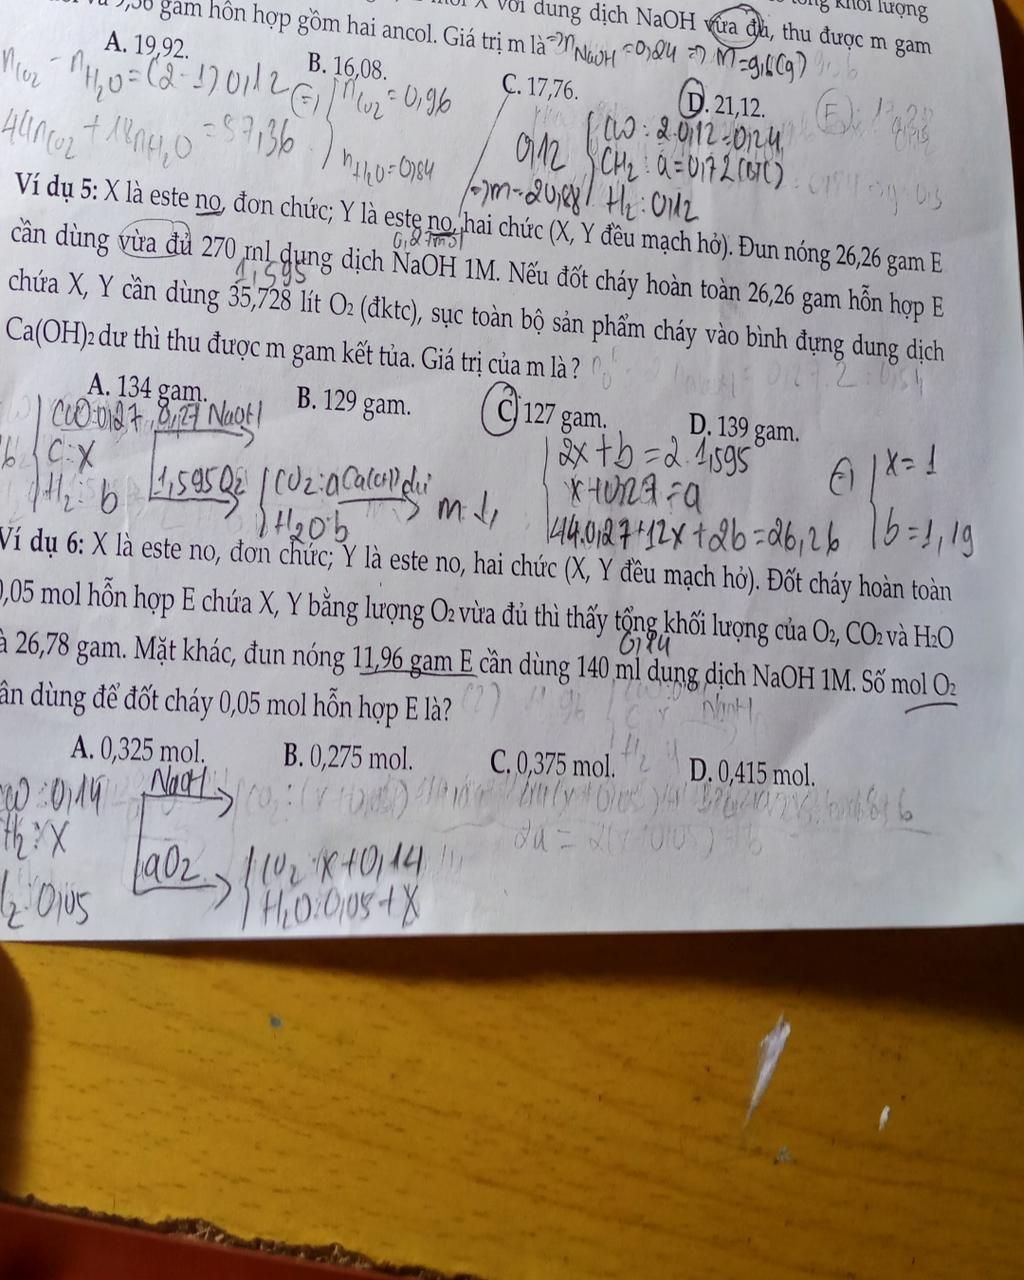 gam hỗn hợp gồm hai ancol. Giá trị m là với dung dịch NaOH vừa đủ, thu được m gam
⇒ nNaOH = 0,24 ⇒ m = 9,6 (g)
A. 19,92. B. 16,08. C. 17,76. D. 21,12.
nCO2 - nH2O = (2-1) 0,12
44nCO2 + 18nH2O = 57,36
nCO2 = 0,96
nH2O = 0,84
0,12
COO : 2.0,12 = 0,24
CH2 : a = 0,72 (BTC)
H2 : 0,12
⇒ m = 20,88
Ví dụ 5: X là este no, đơn chức; Y là este no, hai chức (X, Y đều mạch hở). Đun nóng 26,26 gam E
0,27 mol
cần dùng vừa đủ 270 ml dung dịch NaOH 1M. Nếu đốt cháy hoàn toàn 26,26 gam hỗn hợp E
1,595
chứa X, Y cần dùng 35,728 lít O2 (đktc), sục toàn bộ sản phẩm cháy vào bình đựng dung dịch
Ca(OH)2 dư thì thu được m gam kết tủa. Giá trị của m là ?
A. 134 gam. B. 129 gam. C. 127 gam. D. 139 gam.
COO : 0,27
C : x
H2 : b
0,27 NaOH
1,595 O2
CO2 : a
H2O : b
Ca(OH)2 dư
m ↓
2x + b = 2.1,595
x + 0,27 = a
44.0,27 + 12x + 2b = 26,26
x = 1
b = 1,19
Ví dụ 6: X là este no, đơn chức; Y là este no, hai chức (X, Y đều mạch hở). Đốt cháy hoàn toàn
0,05 mol hỗn hợp E chứa X, Y bằng lượng O2 vừa đủ thì thấy tổng khối lượng của O2, CO2 và H2O
0,14
à 26,78 gam. Mặt khác, đun nóng 11,96 gam E cần dùng 140 ml dung dịch NaOH 1M. Số mol O2
ần dùng để đốt cháy 0,05 mol hỗn hợp E là?
A. 0,325 mol. B. 0,275 mol. C. 0,375 mol. D. 0,415 mol.
COO : 0,14
H2 : x
H2 : 0,05
NaOH
aO2
CO2 : x + 0,14
H2O : 0,05 + x